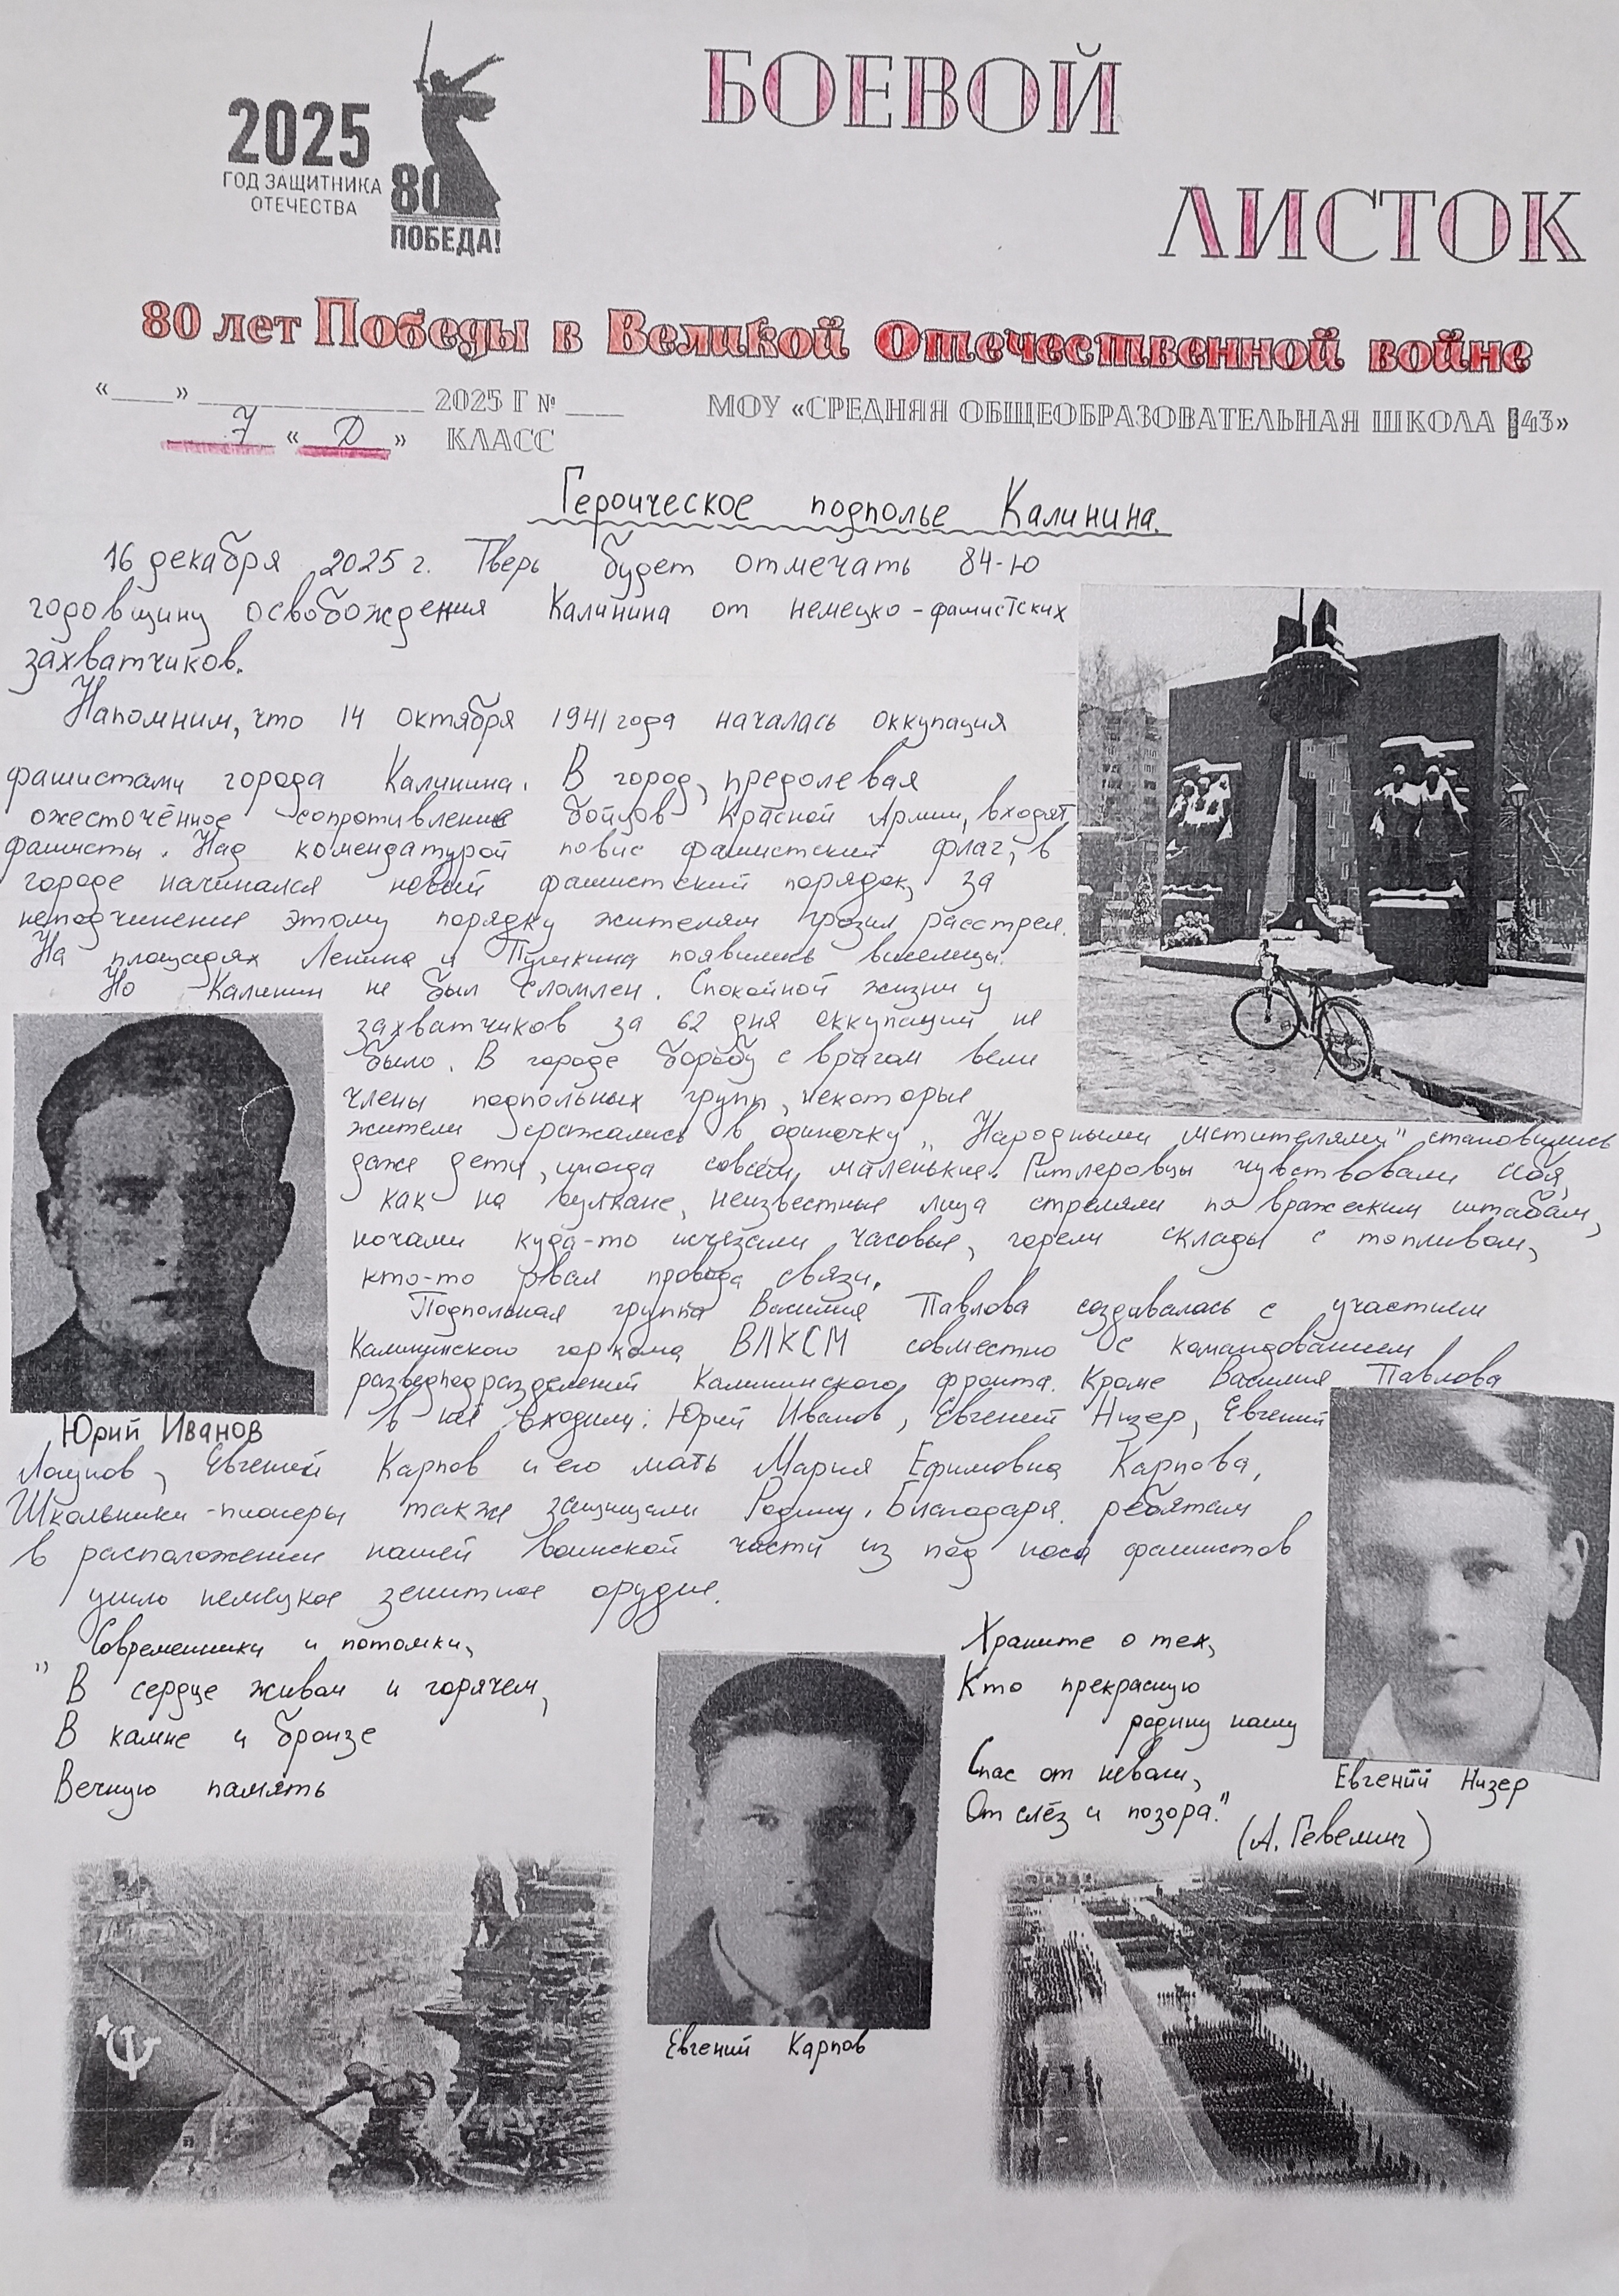 БОЕВОЙ
ЛИСТОК
2025
ГОД ЗАЩИТНИКА
ОТЕЧЕСТВА
80
ПОБЕДА!
80 лет Победы в Великой Отечественной войне
«____» ______________ 2025 Г № ____
МОУ «СРЕДНЯЯ ОБЩЕОБРАЗОВАТЕЛЬНАЯ ШКОЛА №43»
7 «Д» КЛАСС
Героическое подполье Калинина.
16 декабря 2025 г. Тверь будет отмечать 84-ю
годовщину освобождения Калинина от немецко-фашистских
захватчиков.
Напомним, что 14 октября 1941 года началась оккупация
фашистами города Калинина. В город, предолевая
ожесточённое сопротивление бойцов Красной Армии, входят
фашисты. Над комендатурой повис фашистский флаг, в
городе начинался новый фашистский порядок, за
неподчинение этому порядку жителям грозил расстрел.
На площадях Ленина и Пушкина появились виселицы.
Но Калинин не был сломлен. Спокойной жизни у
захватчиков за 62 дня оккупации не
было. В городе борьбу с врагом вели
члены подпольных групп, некоторые
жители сражались в одиночку. „Народными мстителями" становились
даже дети, иногда совсем маленькие. Гитлеровцы чувствовали себя,
как на вулкане, неизвестные лица стреляли по вражеским штабам,
ночами куда-то исчезали часовые, горели склады с топливом,
кто-то рвал провода связи.
Подпольная группа Василия Павлова создавалась с участием
Калининского горкома ВЛКСМ совместно с командованием
разведподразделений Калининского фронта. Кроме Василия Павлова
в неё входили: Юрий Иванов, Евгений Низер, Евгений
Логунов, Евгений Карпов и его мать Мария Ефимовна Карпова,
Школьники-пионеры также защищали Родину. Благодаря ребятам
в расположение нашей воинской части из под носа фашистов
ушло немецкое зенитное орудие.
Юрий Иванов
Современники и потомки,
"В сердце живом и горячем,
В камне и бронзе
Вечную память
Храните о тех,
Кто прекрасную
родину нашу
Спас от неволи,
От слёз и позора."
(А. Гевелинг)
Евгений Низер
Евгений Карпов